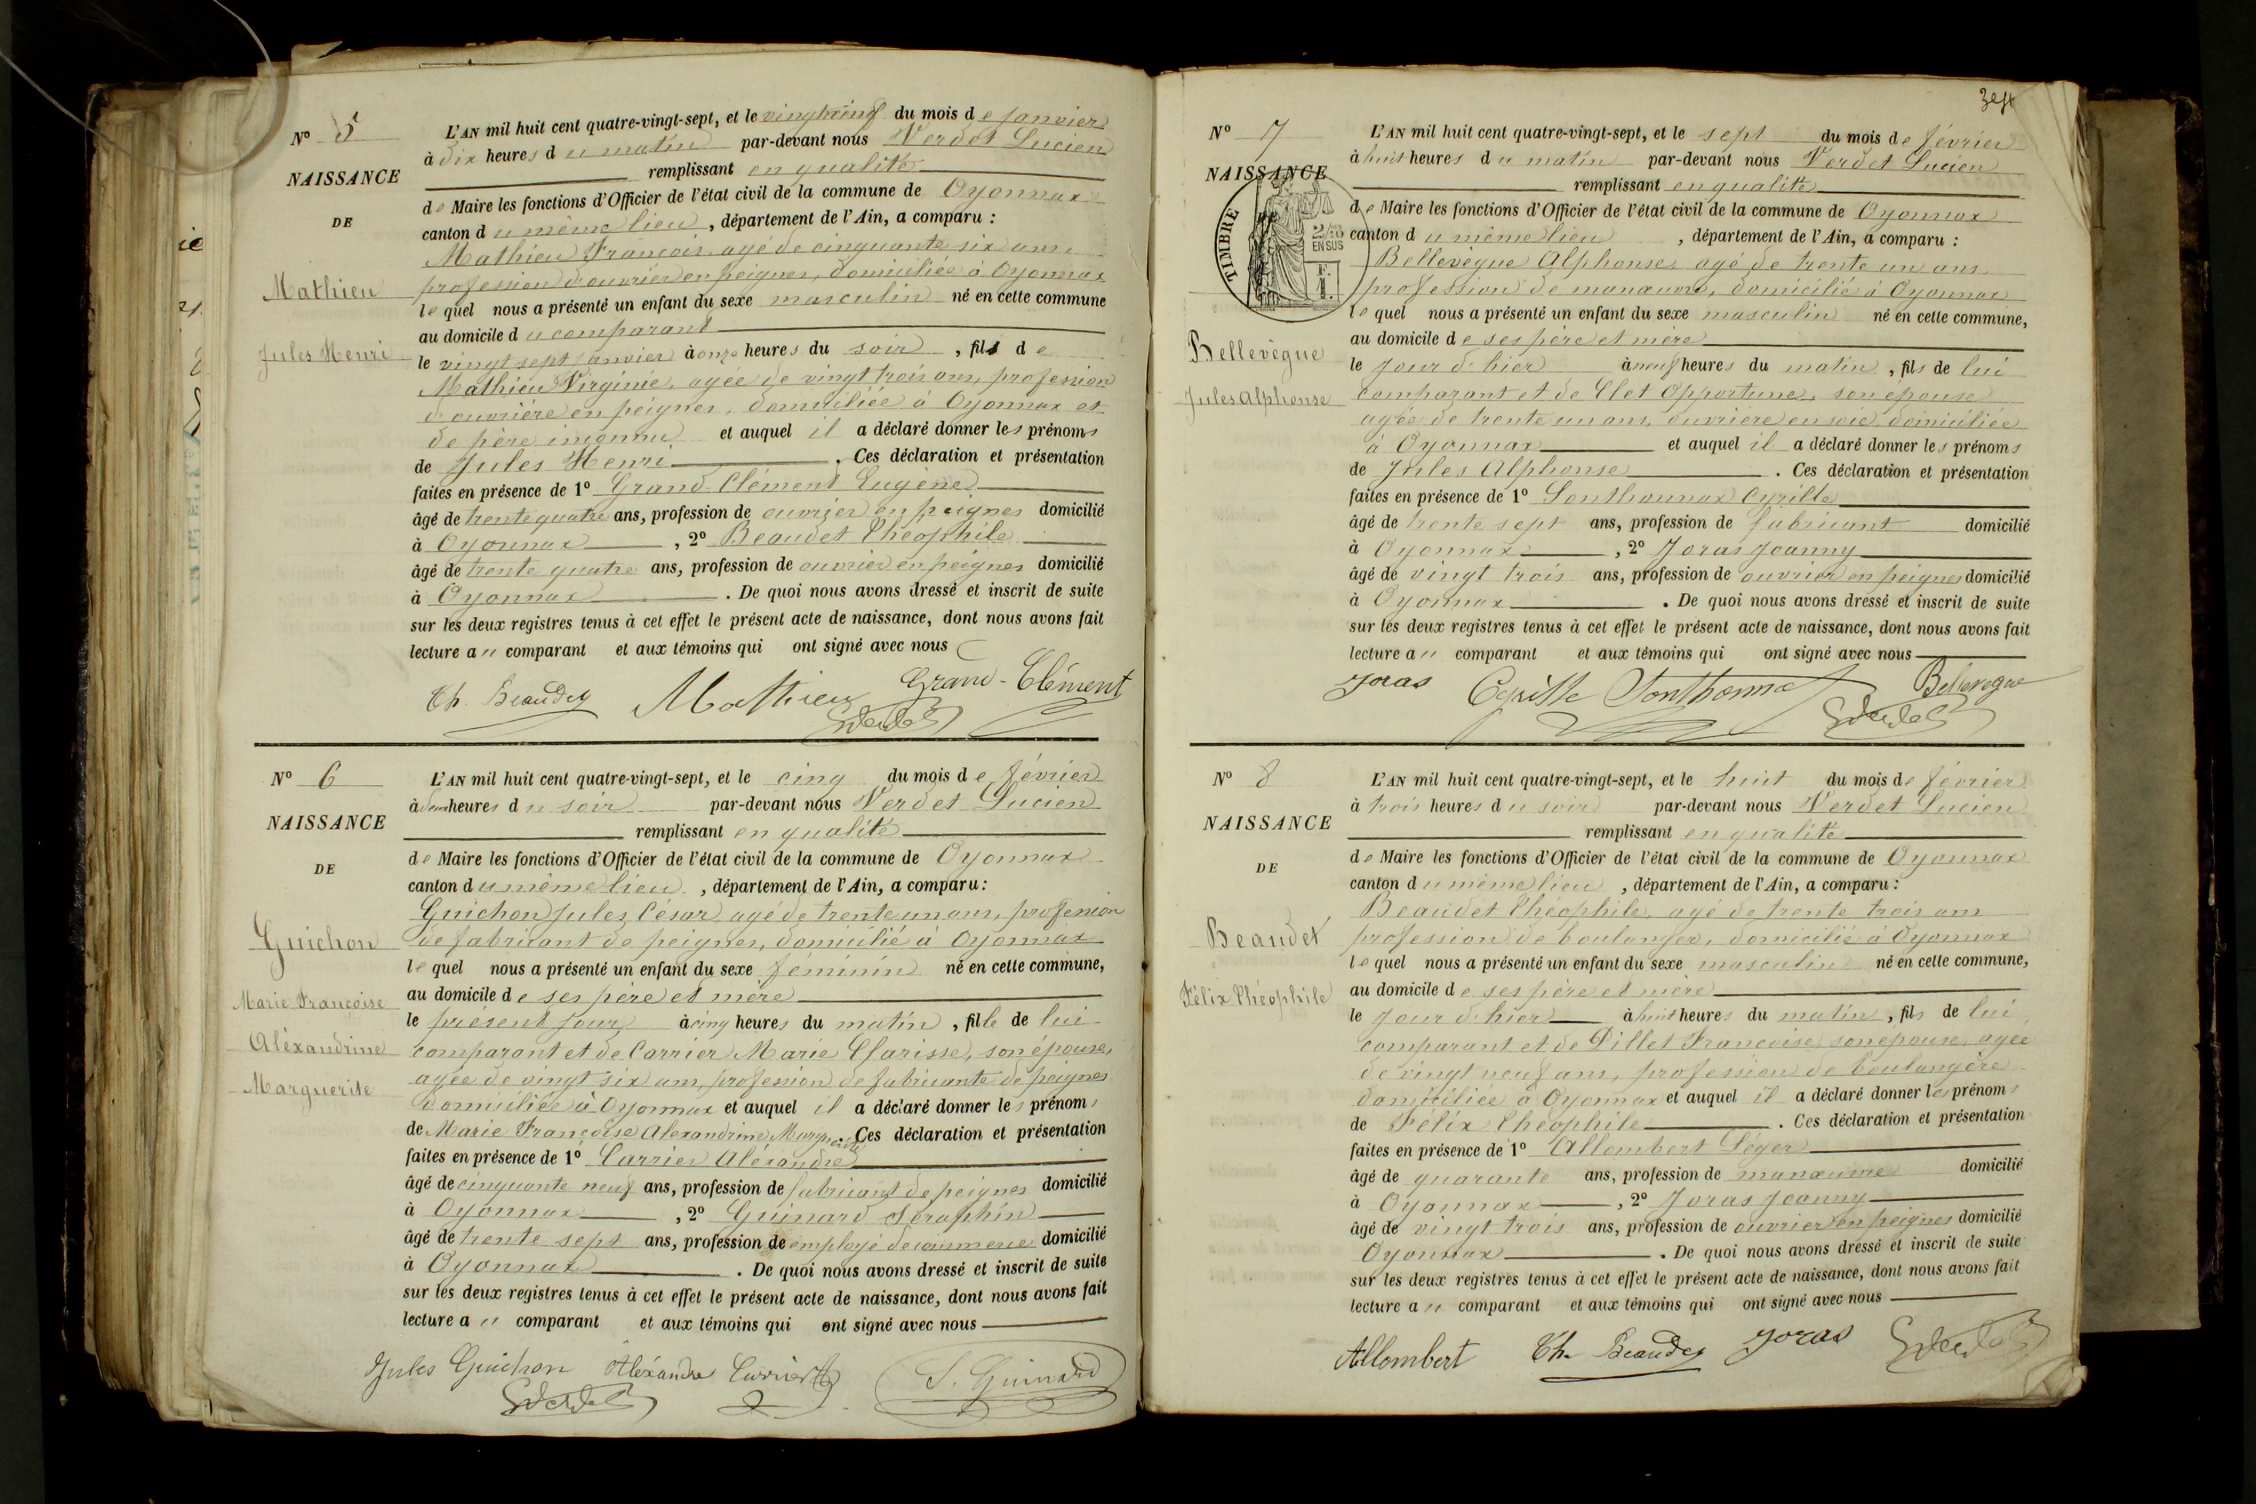 N° 5
NAISSANCE
DE
Mathieu
Jules Henri
L'AN mil huit cent quatre-vingt-sept, et le vingt neuf du mois de janvier
à dix heures du matin par-devant nous Verdet Lucien
remplissant en qualité
de Maire les fonctions d'Officier de l'état civil de la commune de Oyonnax
canton du même lieu, département de l'Ain, a comparu :
Mathieu François, agé de cinquante six ans,
profession d'ouvrier en peignes, domiciliée à Oyonnax
lequel nous a présenté un enfant du sexe masculin né en cette commune
au domicile du comparant
le vingt sept janvier à onze heures du soir, fils de
Mathieu Virginie, agée de vingt trois ans, profession
d'ouvrière en peignes, domiciliée à Oyonnax et
de père inconnu et auquel il a déclaré donner les prénoms
de Jules Henri. Ces déclaration et présentation
faites en présence de 1° Grand-Clément Eugène
âgé de trente quatre ans, profession de ouvrier en peignes domicilié
à Oyonnax, 2° Beaudet Théophile
âgé de trente quatre ans, profession de ouvrier en peignes domicilié
à Oyonnax. De quoi nous avons dressé et inscrit de suite
sur les deux registres tenus à cet effet le présent acte de naissance, dont nous avons fait
lecture au comparant et aux témoins qui ont signé avec nous
Th. Beaudet Mathieu Grand-Clément
N° 6
NAISSANCE
DE
Guichon
Marie Françoise
Aléxandrine
Marguerite
L'AN mil huit cent quatre-vingt-sept, et le cinq du mois de février
à deux heures du soir par-devant nous Verdet Lucien
remplissant en qualité
de Maire les fonctions d'Officier de l'état civil de la commune de Oyonnax
canton du même lieu, département de l'Ain, a comparu :
Guichon Jules César, agé de trente un ans, profession
de fabricant de peignes, domicilié à Oyonnax
lequel nous a présenté un enfant du sexe féminin né en cette commune,
au domicile de ses père et mère
le présent jour, à cinq heures du matin, fille de lui
comparant et de Carrier Marie Clarisse, son épouse,
agée de vingt six ans, profession de fabricante de peignes
domiciliée à Oyonnax et auquel il a déclaré donner les prénoms
de Marie Françoise Alexandrine Marguerite. Ces déclaration et présentation
faites en présence de 1° Carrier Aléxandre
âgé de cinquante neuf ans, profession de fabricant de peignes domicilié
à Oyonnax, 2° Guinard Séraphin
âgé de trente sept ans, profession de employé de domicilié
à Oyonnax. De quoi nous avons dressé et inscrit de suite
sur les deux registres tenus à cet effet le présent acte de naissance, dont nous avons fait
lecture au comparant et aux témoins qui ont signé avec nous
Jules Guichon Aléxandre Carrier S. Guinard
3 
N° 7
NAISSANCE
TIMBRE
2/10
EN SUS
F.
1.
Bellevègue
Jules Alphonse
L'AN mil huit cent quatre-vingt-sept, et le sept du mois de février
à huit heures du matin par-devant nous Verdet Lucien
remplissant en qualité
de Maire les fonctions d'Officier de l'état civil de la commune de Oyonnax
canton du même lieu, département de l'Ain, a comparu :
Bellevègue Alphonse, agé de trente un ans
profession de manœuvre, domicilié à Oyonnax
lequel nous a présenté un enfant du sexe masculin né en cette commune,
au domicile de ses père et mère
le jour d'hier à neuf heures du matin, fils de lui
comparant et de Clet Opportune, son épouse
agée de trente un ans, ouvrière en soie, domiciliée
à Oyonnax et auquel il a déclaré donner les prénoms
de Jules Alphonse. Ces déclaration et présentation
faites en présence de 1° Sonthonnax Cyrille
âgé de trente sept ans, profession de fabricant domicilié
à Oyonnax, 2° Joras Joanny
âgé de vingt trois ans, profession de ouvrier en peignes domicilié
à Oyonnax. De quoi nous avons dressé et inscrit de suite
sur les deux registres tenus à cet effet le présent acte de naissance, dont nous avons fait
lecture au comparant et aux témoins qui ont signé avec nous
Joras Cyrille Sonthonnax Bellevegue
N° 8
NAISSANCE
DE
Beaudet
Félix Théophile
L'AN mil huit cent quatre-vingt-sept, et le huit du mois de février
à trois heures du soir par-devant nous Verdet Lucien
remplissant en qualité
de Maire les fonctions d'Officier de l'état civil de la commune de Oyonnax
canton du même lieu, département de l'Ain, a comparu :
Beaudet Théophile, agé de trente trois ans
profession de boulanger, domicilié à Oyonnax
lequel nous a présenté un enfant du sexe masculin né en cette commune,
au domicile de ses père et mère
le jour d'hier à huit heures du matin, fils de lui
comparant et de Dillet Françoise, son épouse, agée
de vingt neuf ans, profession de boulangère
domiciliée à Oyonnax et auquel il a déclaré donner les prénoms
de Félix Théophile. Ces déclaration et présentation
faites en présence de 1° Allombert Léger
âgé de quarante ans, profession de manœuvre domicilié
à Oyonnax, 2° Joras Joanny
âgé de vingt trois ans, profession de ouvrier en peignes domicilié
Oyonnax. De quoi nous avons dressé et inscrit de suite
sur les deux registres tenus à cet effet le présent acte de naissance, dont nous avons fait
lecture au comparant et aux témoins qui ont signé avec nous
Allombert Th. Beaudet Joras